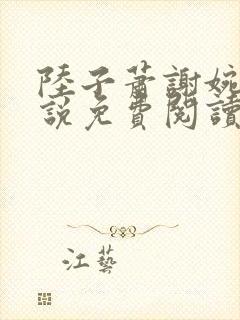 陸子蕭謝婉
說免費閱讀
江藝